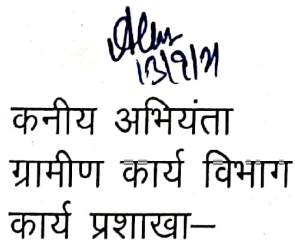 13/9/21
कनीय अभियंता
ग्रामीण कार्य विभाग
कार्य प्रशाखा–